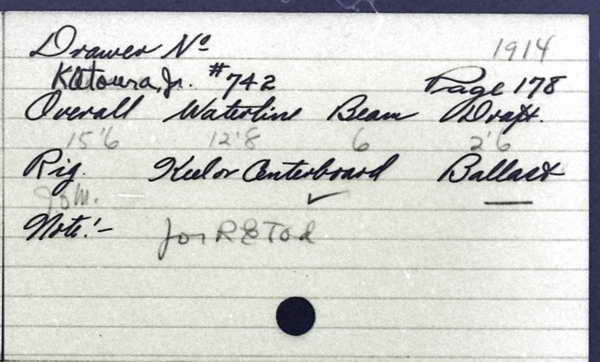 Drawer No 1914
Katoura, Jr. #742 Page 178
Overall Waterline Beam Draft.
15'6 12'8 6 2'6
Rig. Keel or Centerboard Ballast
✓ —
Note:- for R E Tod